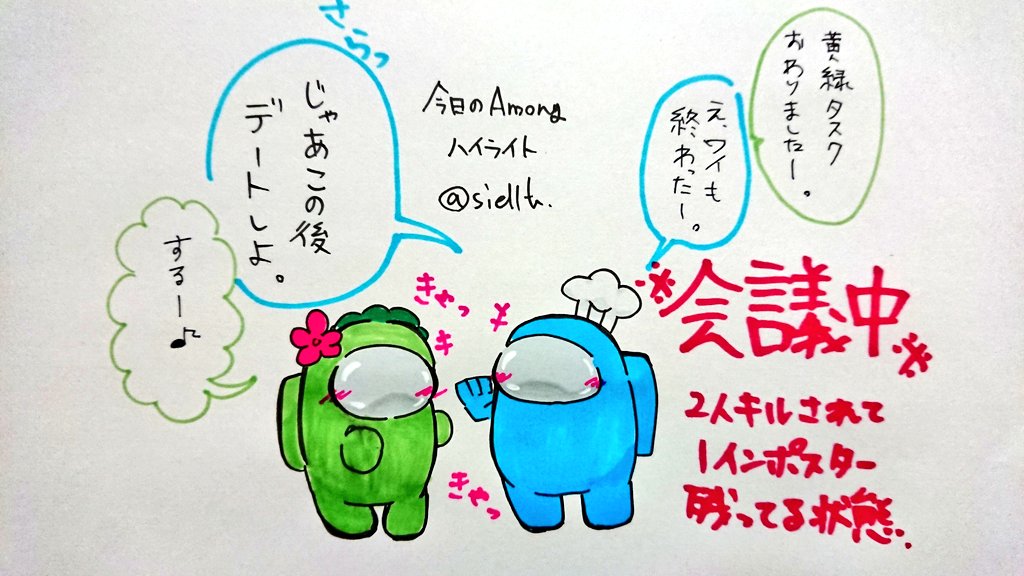 黄緑タスク
おわりましたー。
え、ワイも
終わったー。
今日のAmong
ハイライト
さらっ
じゃあこの後
デートしよ。
するー♪
きゃっ
きゃっ
※会議中※
2人キルされて
1インポスター
残ってる状態.